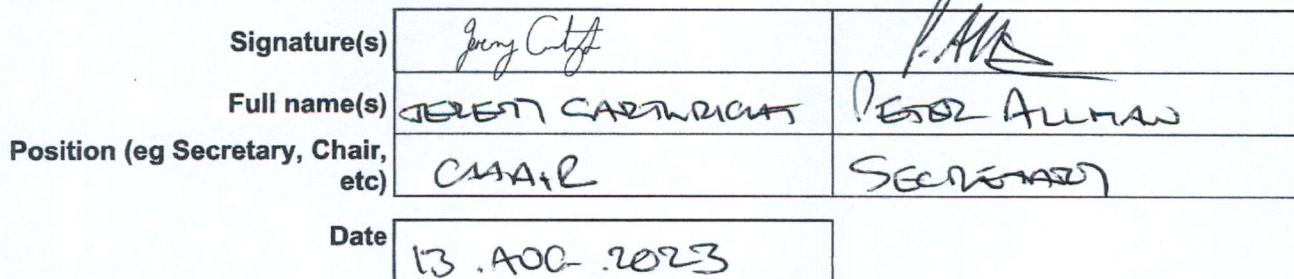 Signature(s) Jeremy Cartwright P. Allman
Full name(s) JEREMY CARTWRIGHT PETER ALLMAN
Position (eg Secretary, Chair,
etc) CHAIR SECRETARY
Date 13 . AUG . 2023